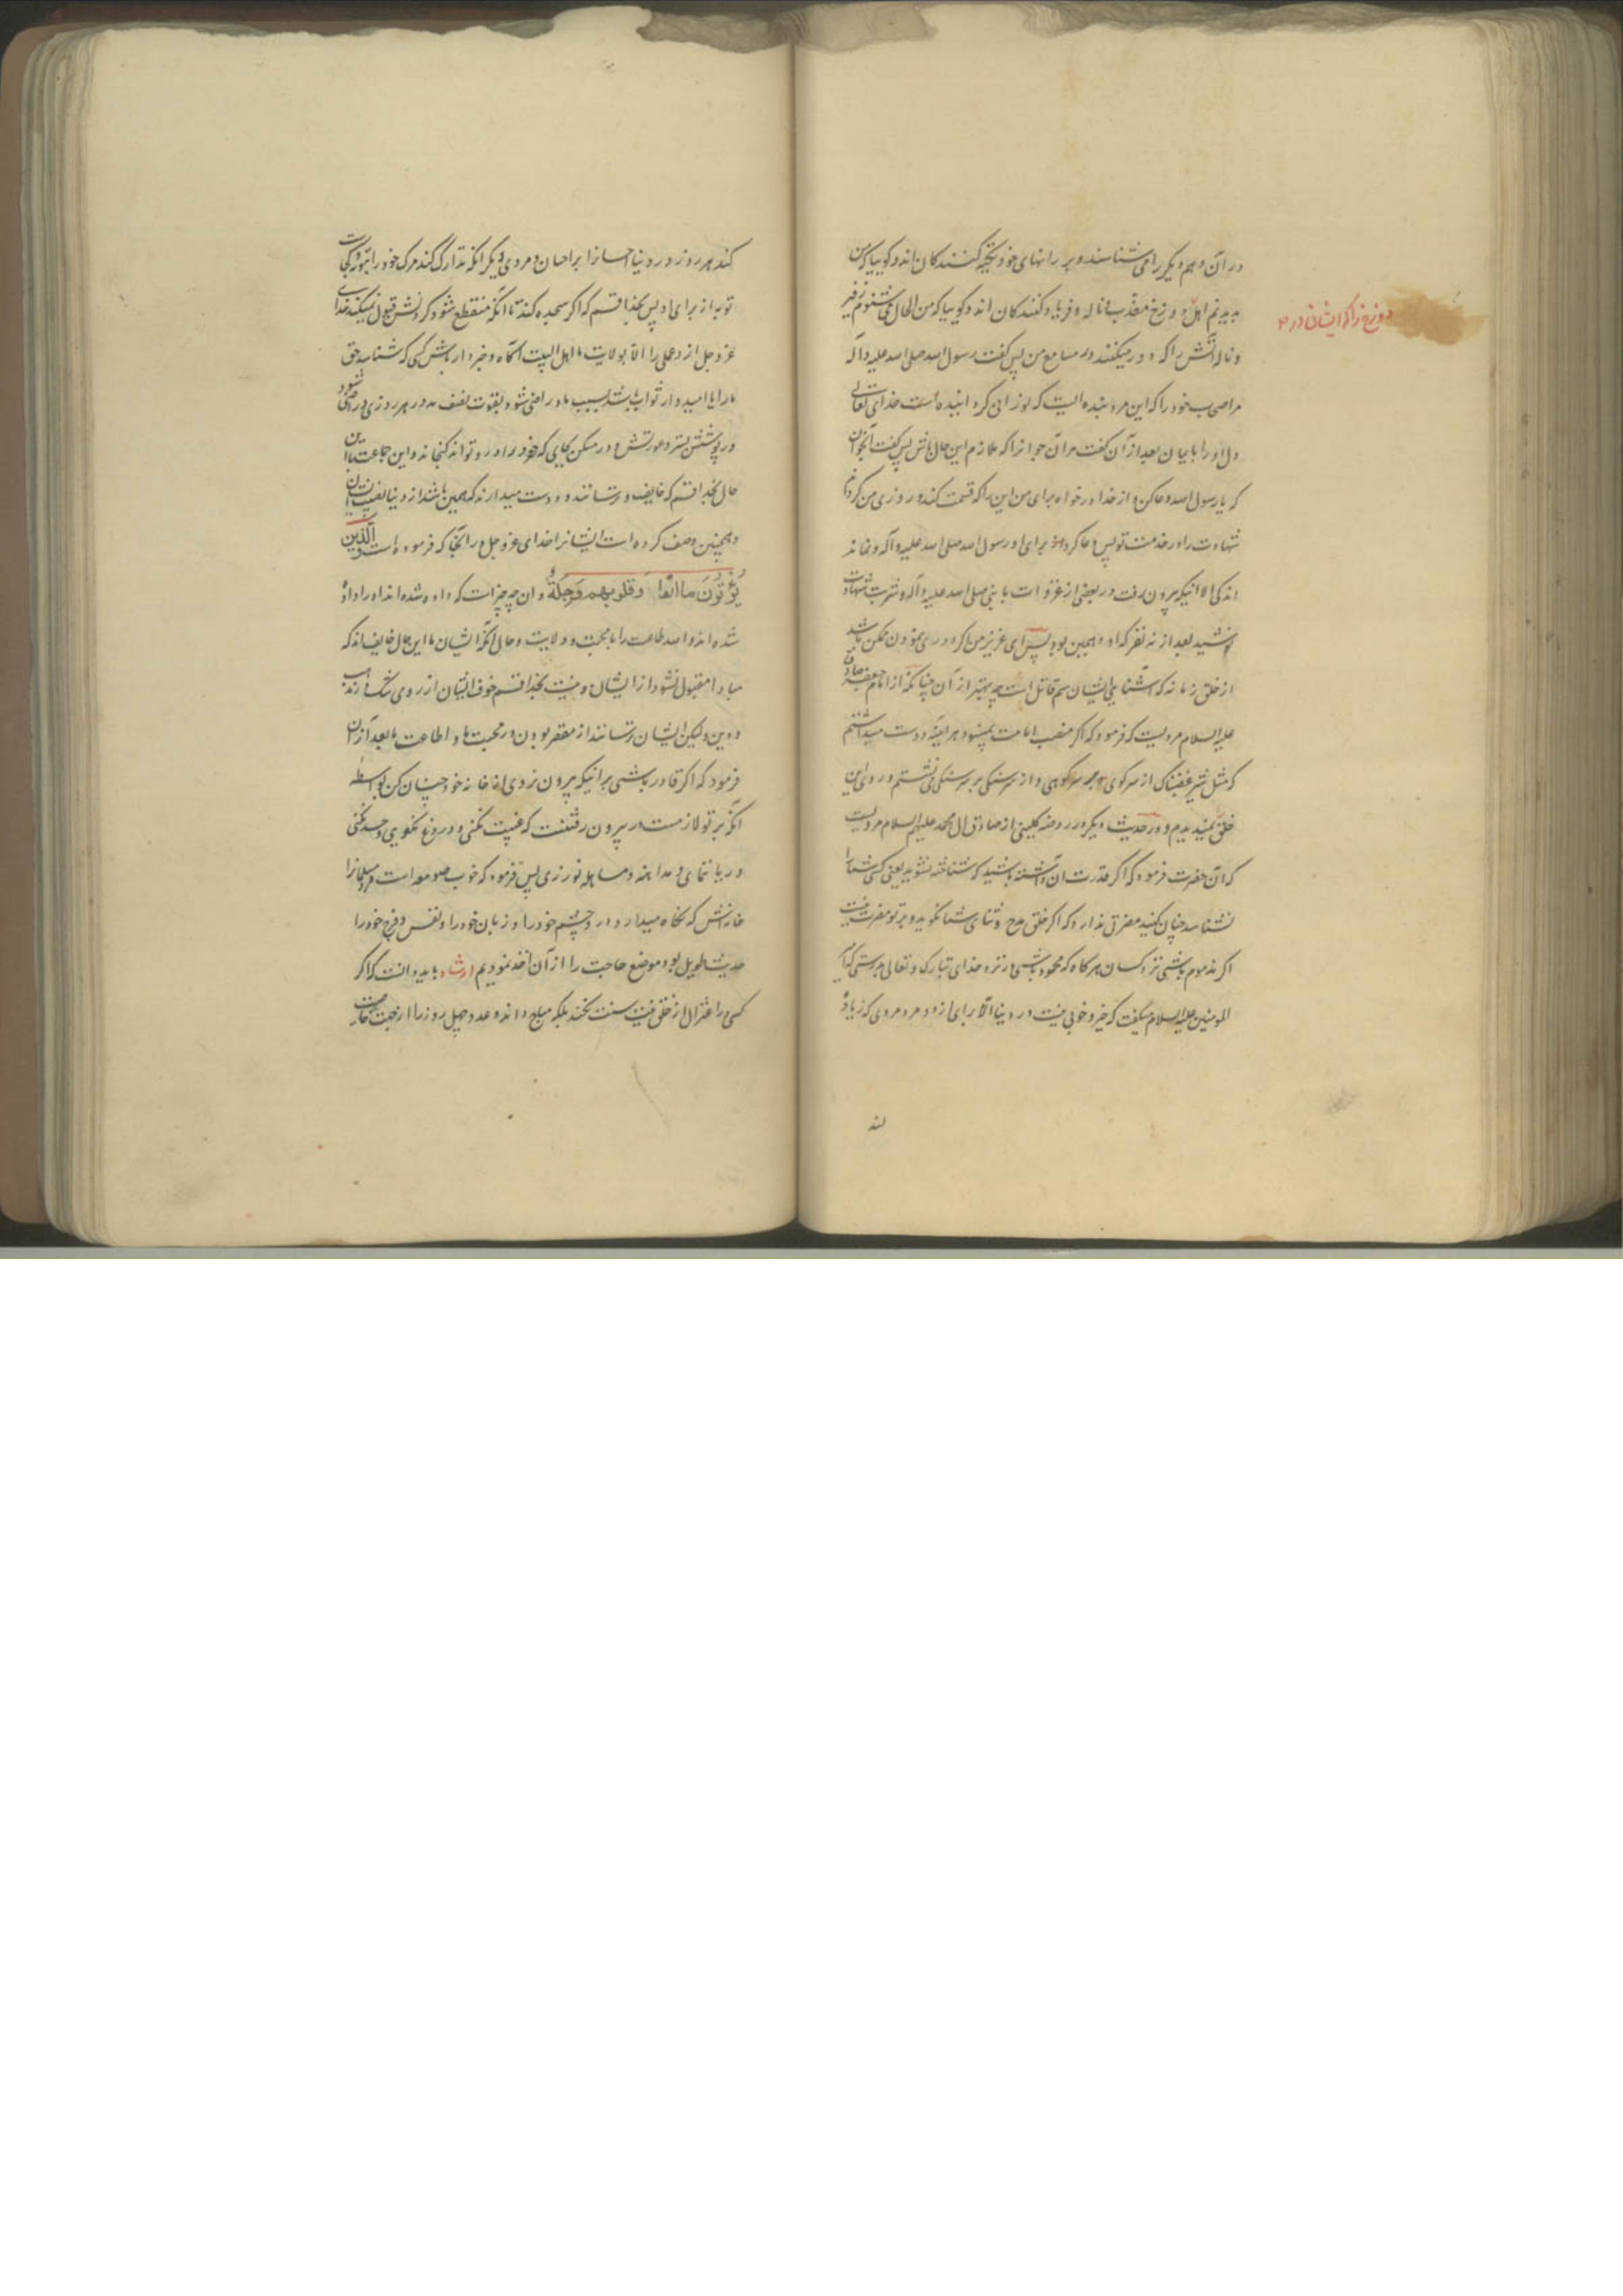 در آن و هم دیگر را می شناسند و بر رانهای خود تکیه کنندکان اند و کوییا که من
می بینم اهل دوزخ معذب و ناله و فریاد کنندکان اند و کوییا که من الحال می شنوم زفیر
و ناله آتش را که دور میکند در مسامع من پس کفت رسول الله صلی الله علیه و آله
مر اصحاب خود را که این مرد بنده ایست که نورانی کرد انیده است خدای تعالی
دل او را بایمان بعد از آن کفت مر آن جوانرا که ملازم این حال باش پس کفت آنجوان
که یا رسول الله دعا کن و از خدا درخواه برای من این را که قسمت کند و روزی من کرداند
شهادت را در خدمت تو پس دعا کرد برای او رسول الله صلی الله علیه و آله و نماند
اندکی الا انیکه بیرون رفت در بعضی از غزوات با نبی صلی الله علیه و آله و شربت شهادت
نوشید بعد از نه نفر که او دهمین بود پس ای عزیز من اکر دوری نمودن ممکن باشد
از خلق زمانه که آشنایی ایشان سم قاتل است چه بهتر از آن چنانکه از امام جعفر صادق
علیه السلام مرویست که فرمود که اکر منصب امامت نمیبود هر آینه دوست میداشتم
که مثل شیر غضبناک از سر کوهی بر سر کوهی و از سر سنکی بر سر سنکی می نشستم و روی این
خلق نمیدیدم و در حدیث دیکر در روضه کلینی از صادق ال محمد علیهم السلام مرویست
که آن حضرت فرمود که اکر قدرت آن داشته باشید که شناخته نشوید یعنی کسی شما را
نشناسد چنان کنید مضرتی ندارد که اکر خلق مدح و ثنای شما نکوید و بر تو مضرت نیست
اکر مذموم باشی نزد کسان هرکاه که محمود باشی نزد خدای تبارک و تعالی بدرستی که امیر
المومنین علیه السلام میکفت که خیر و خوبی نیست در دنیا الا برای از دو مرد مردی که زیاده
دوزخ را که ایشان در
کند هر روز در دنیا احسانرا بر احسان و مردی دیکر انکه تدارک کند مرک خود را بتوبه و کجاست
توبه از برای او پس بخدا قسم که اکر سجده کند تا انکه منقطع شود کردنش قبول نمیکند خدای
عز و جل از و عملی را الا بولایت ما اهل البیت آکاه و خبردار باش کسی که شناسد حق
ما را یا امیدوار ثواب باشد بسبب ما و راضی شود بقوت نصف مد در هر روزی و راضی شود
در پوشش بستر عورتش و در مسکن بجای که خود در او تواند کنجاند و این جماعت با این
حال بخدا قسم که خایف و ترسانند و دوست میدارند که همین باشد از دنیا نصیب ایشان
و همچنین وصف کرده است ایشانرا خدای عز و جل در آنجا که فرموده است و الَّذین
یُؤْتُونَ ما اتَوا وَ قلوبهم وَجِلَةٌ و ان چه چیز است که داده شده اند او را داده
شده اند و الله طاعت را با محبت و ولایت و حال آنکه ایشان با این حال خایف اند که
مبادا مقبول نشود از ایشان و نیست بخدا قسم خوف ایشان از روی شک در مذهب
و دین ولیکن ایشان ترسانند از مقصر بودن در محبت ما و اطاعت ما بعد از آن
فرمود که اکر قادر باشی بر انیکه بیرون نروی از خانه خود چنان کن بواسطه
آنکه بر تو لازمست در بیرون رفتنت که غیبت نکنی و دروغ نکویی و حسد نکنی
و ریا ننمای و مداهنه و مساهله نورزی پس فرمود که خوب صومعه است مرد مسلمانرا
خانه اش که نکاه میدارد در او چشم خود را و زبان خود را و نفس و فرج خود را
حدیث طویل بود موضع حاجت را از آن اخذ نمودیم ارشاد باید دانست که اکر
کسی را اعتزال از خلق نیت سنت نکند بلکه مباح داند و عدد چهل روز را از جهت خاصیت